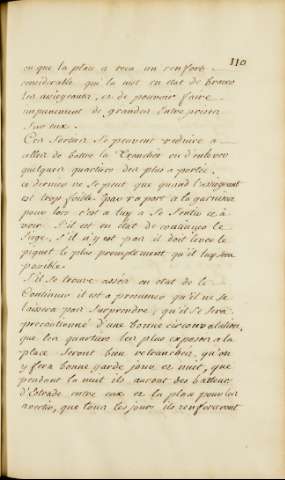 110
ou que la place a recu un renfort
considerable qui la met en etat de braver
les assiegeants, et de pouvoir faire
impunement de grandes Entreprises
Sur eux.
Ces Sorties Se peuvent reduire a
aller de battre la Tranchée ou d'enlever
quelques quartiers des plus a portée.
ce dernier ne Se peut que quand l'assiegeant
est trop foible par raport a la garnison
pour lors c'est a luy a Se Sentir et a
voir S'il est en etat de continuer le
Siege, S'il n'y est pas il doit lever le
piquet le plus promptement qu'il luy sera
possible.
S'il Se trouve assés en etat de le
Continuer il est a presumer qu'il ne se
laissera pas Surprendre, qu'il se sera
precautionné d'une bonne circonvalation,
que les quartiers les plus exposés a la
place Seront bien retranchés, qu'on
y fera bonne garde jour et nuit, que
pendant la nuit ils auront des batteurs
d'Estrade entre eux et la place pour les
avertir, que tous les jours ils renforceront